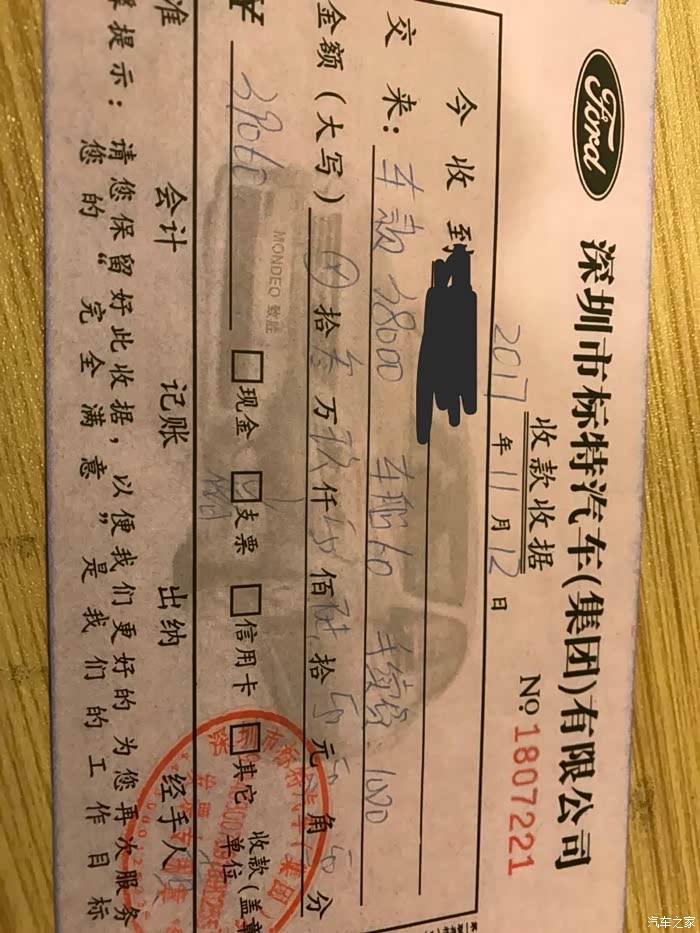 Ford
深圳市标特汽车(集团)有限公司
收款收据
№ 1807221
2017年11月12日
今收到
交来：车款38000 车船60 手续费1000
金额(大写) ⊗拾叁万玖仟零佰陆拾零元零角零分
¥ 39060
□现金 □支票 □信用卡 □其它 收款(盖章)
单位
MONDEO 致胜
准 会计 记账 出纳 经手人
提示：请您保留好此收据，以便我们更好的为您再次服务
您的“完全满意”是我们的工作目标
汽车之家